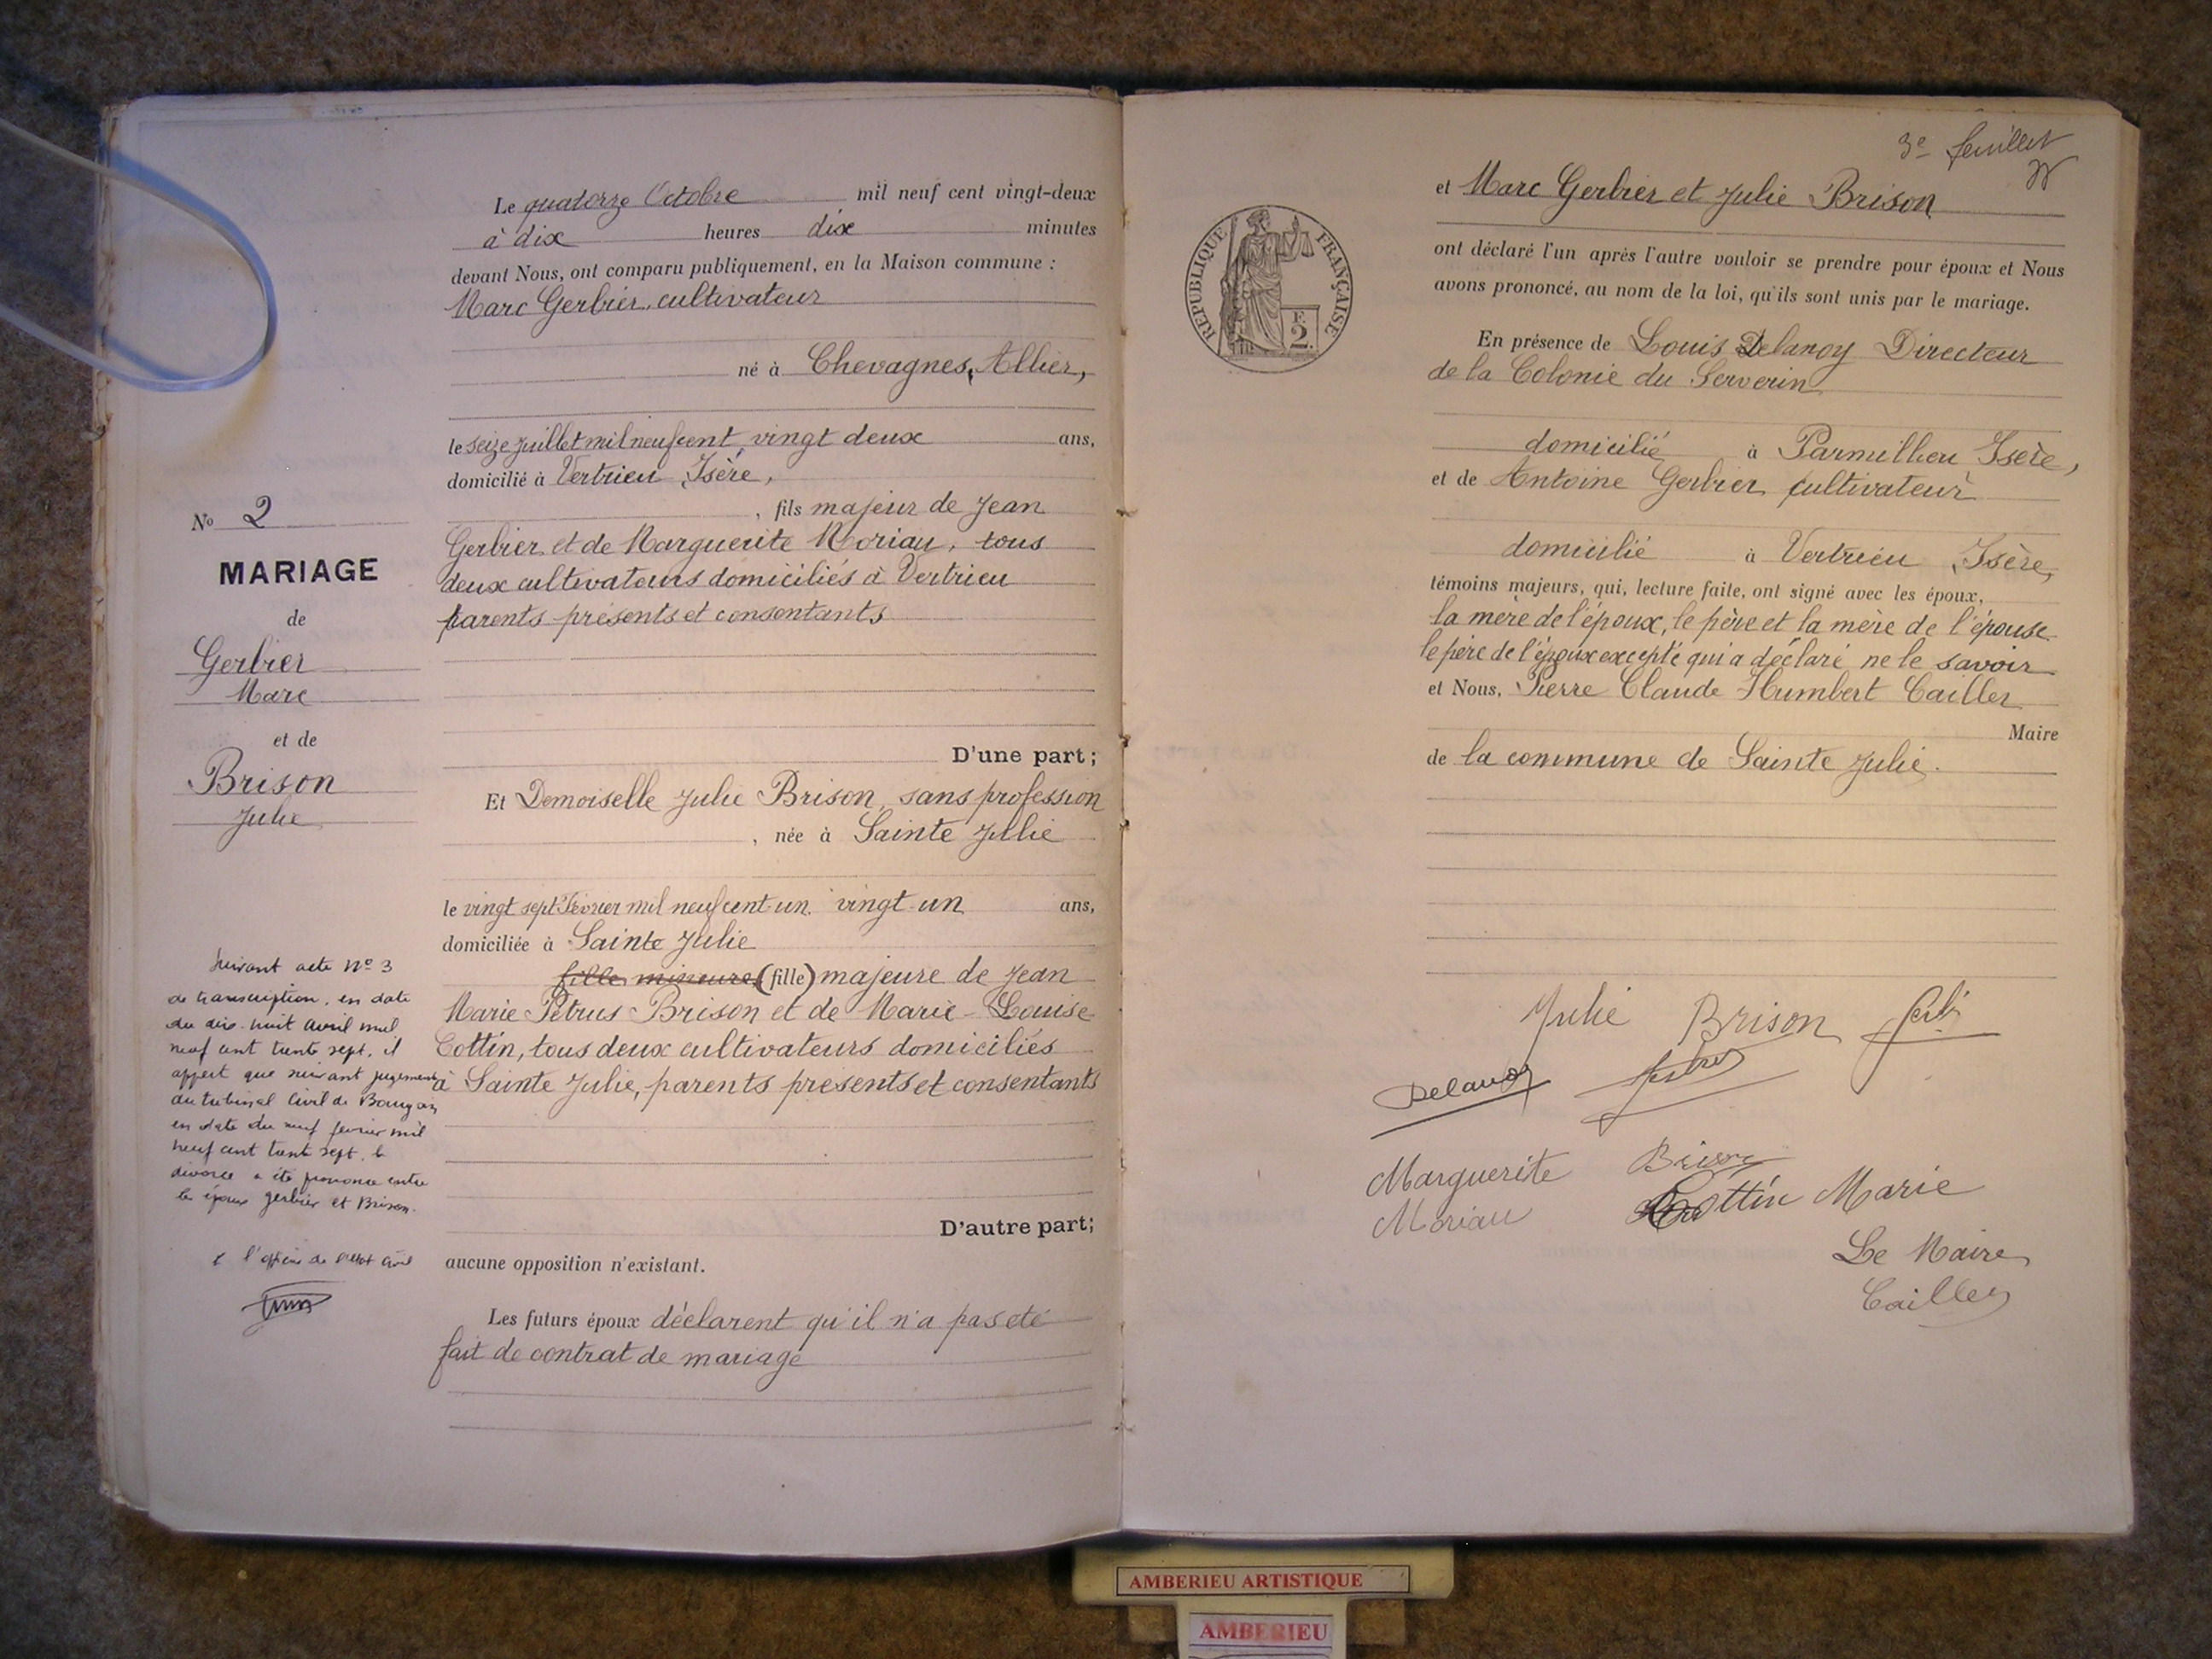 Le quatorze Octobre mil neuf cent vingt-deux
à dix heures dix minutes
devant Nous, ont comparu publiquement, en la Maison commune :
Marc Gerbier, cultivateur
né à Chevagnes, Allier,
le seize juillet mil neuf cent, vingt deux ans,
domicilié à Vertrieu Isère,
, fils majeur de Jean
Gerbier et de Marguerite Moriau, tous
deux cultivateurs domiciliés à Vertrieu
parents présents et consentants
D'une part;
Et Demoiselle Julie Brison, sans profession
, née à Sainte Julie
le vingt sept Février mil neuf cent un, vingt-un ans,
domiciliée à Sainte Julie
fille mineure (fille) majeure de Jean
Marie Pétrus Brison et de Marie-Louise
Cottin, tous deux cultivateurs domiciliés
à Sainte Julie, parents présents et consentants
D'autre part;
aucune opposition n'existant.
Les futurs époux déclarent qu'il n'a pas eté
fait de contrat de mariage
No 2
MARIAGE
de
Gerbier
Marc
et de
Brison
Julie
Suivant acte No 3
de transcription, en date
du dix-huit avril mil
neuf cent trente sept, il
appert que suivant jugement
du tribunal Civil de Bourgoin
en date du neuf fevrier mil
neuf cent trente sept, le
divorce a été prononcé entre
les époux Gerbier et Brison.
l'officier de l'état civil
3e feuillet
et Marc Gerbier et Julie Brison
REPUBLIQUE FRANÇAISE
F.
2.
ont déclaré l'un après l'autre vouloir se prendre pour époux et Nous
avons prononcé, au nom de la loi, qu'ils sont unis par le mariage.
En présence de Louis Delanoy Directeur
de la Colonie du Serverin
domicilié à Parmilieu Isère,
et de Antoine Gerbier cultivateur
domicilié à Vertrieu Isère,
témoins majeurs, qui, lecture faite, ont signé avec les époux,
la mère de l'époux, le père et la mère de l'épouse
le père de l'époux excepté qui a déclaré ne le savoir
et Nous, Pierre Claude Humbert Cailler
Maire
de la commune de Sainte Julie.
Julie Brison
Delanoy
Marguerite Brison
Moriau Cottin Marie
Le Maire
Cailler
AMBERIEU ARTISTIQUE
AMBERIEU